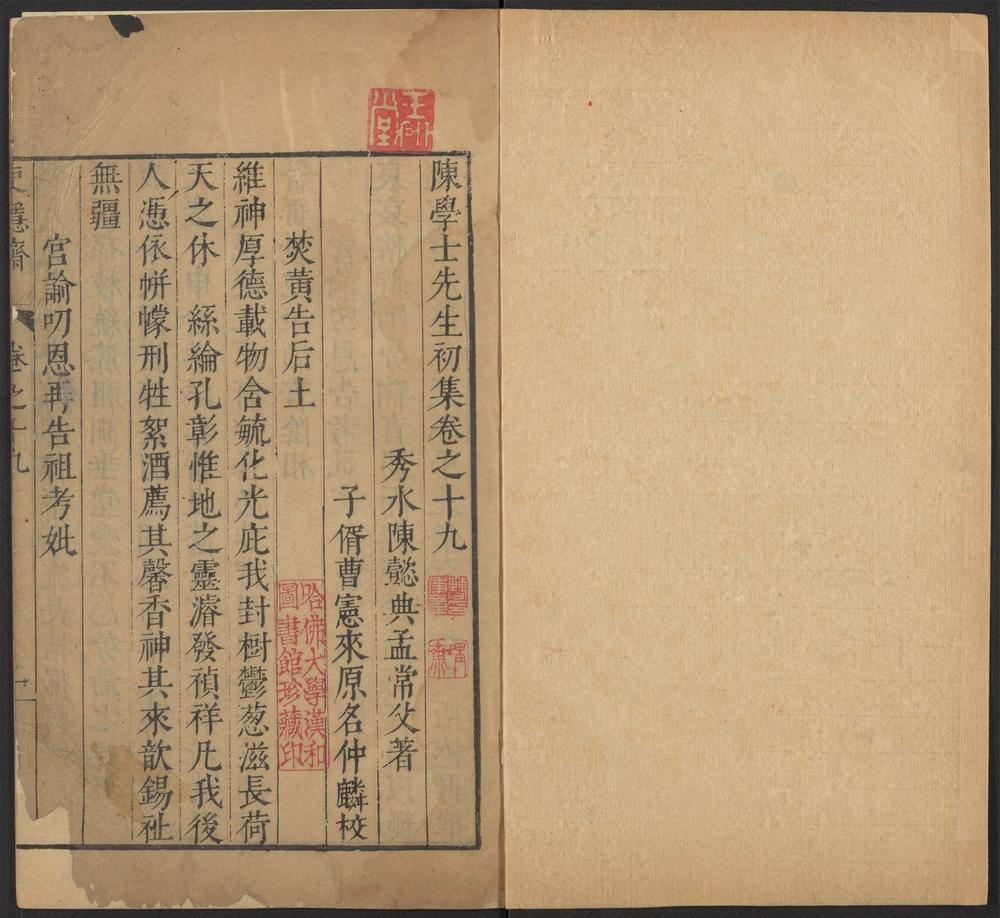 陳學士先生初集卷之十九
秀水陳懿典孟常父著
子壻曹憲來原名仲麟校
焚黃告后土
維神厚德載物含毓化光庇我封樹鬱葱滋長荷
天之休　絲綸孔彰惟地之靈濬發禎祥凡我後
人憑依帡幪刑牲絜酒薦其馨香神其來歆錫祉
無疆
宮諭叨恩再告祖考妣
吏隱齋　卷之十九　一
哈佛大學漢和
圖書館珍藏印